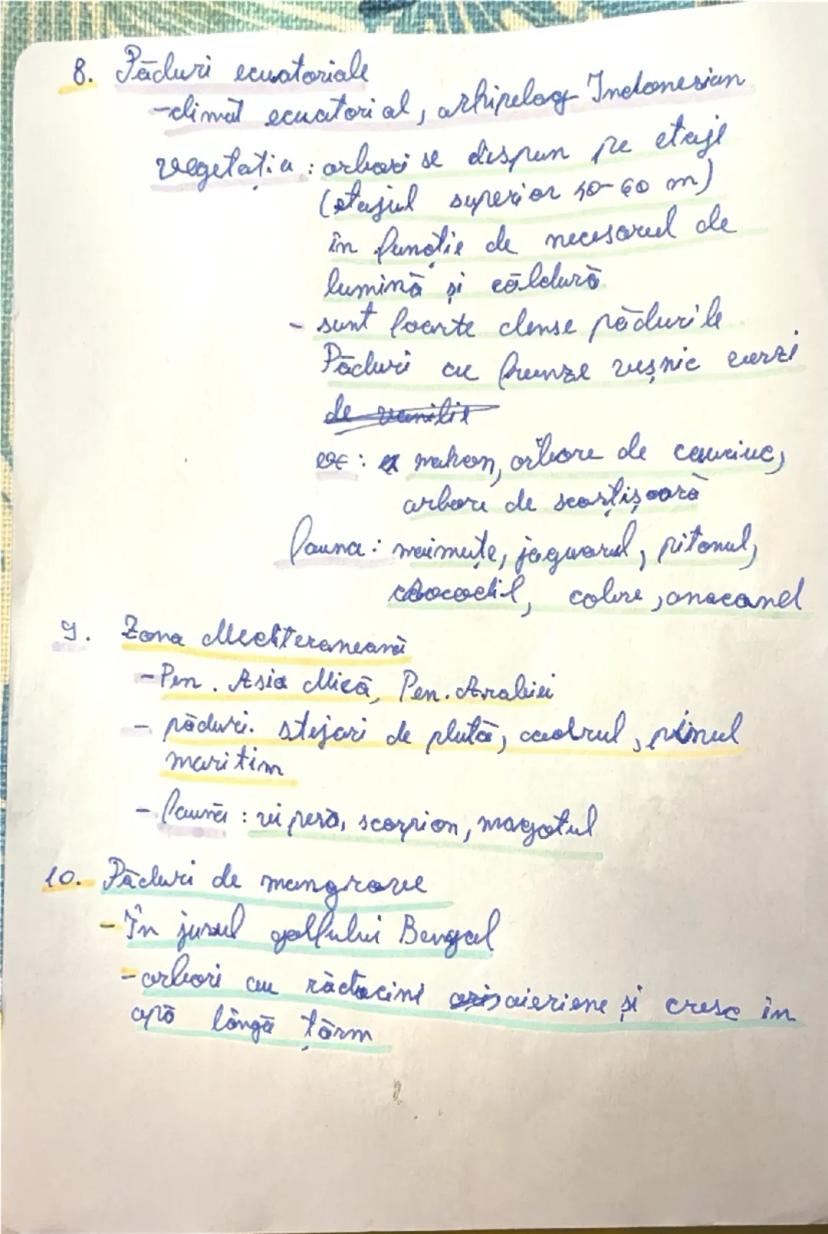 8. Păduri ecuatoriale
- climat ecuatorial, arhipelag Indonesian
vegetația: arbori se dispun pe etaje
(etajul superior 40-60 m)
în funcție de necesarul de
lumină și căldură
- sunt foarte dense pădurile
Păduri cu frunze veșnic verzi
de vanilie
ex: mahon, arbore de cauciuc,
arbore de scorțișoară
fauna: maimuțe, jaguarul, pitonul,
crocodil, cobre, anacond
9. Zona Mediteraneană
- Pen. Asia Mică, Pen. Arabiei
- păduri. stejari de plută, cedrul, pinul
maritim
- faună: vipera, scorpion, magotul
10. Păduri de mangrove
- În jurul golfului Bengal
- arbori cu rădăcini aieriene și cresc în
apă lângă țărm